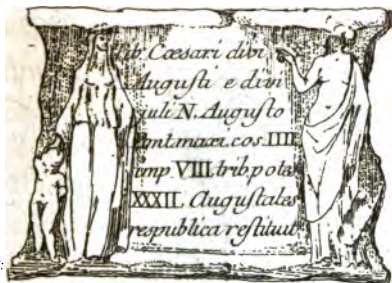 Tib. Cæsari divi
Augusti e divi
juli N. Augusto
pont.maxi.cos.IIII
imp. VIII. trib. pote
XXXII. Augustales
respublica restituit